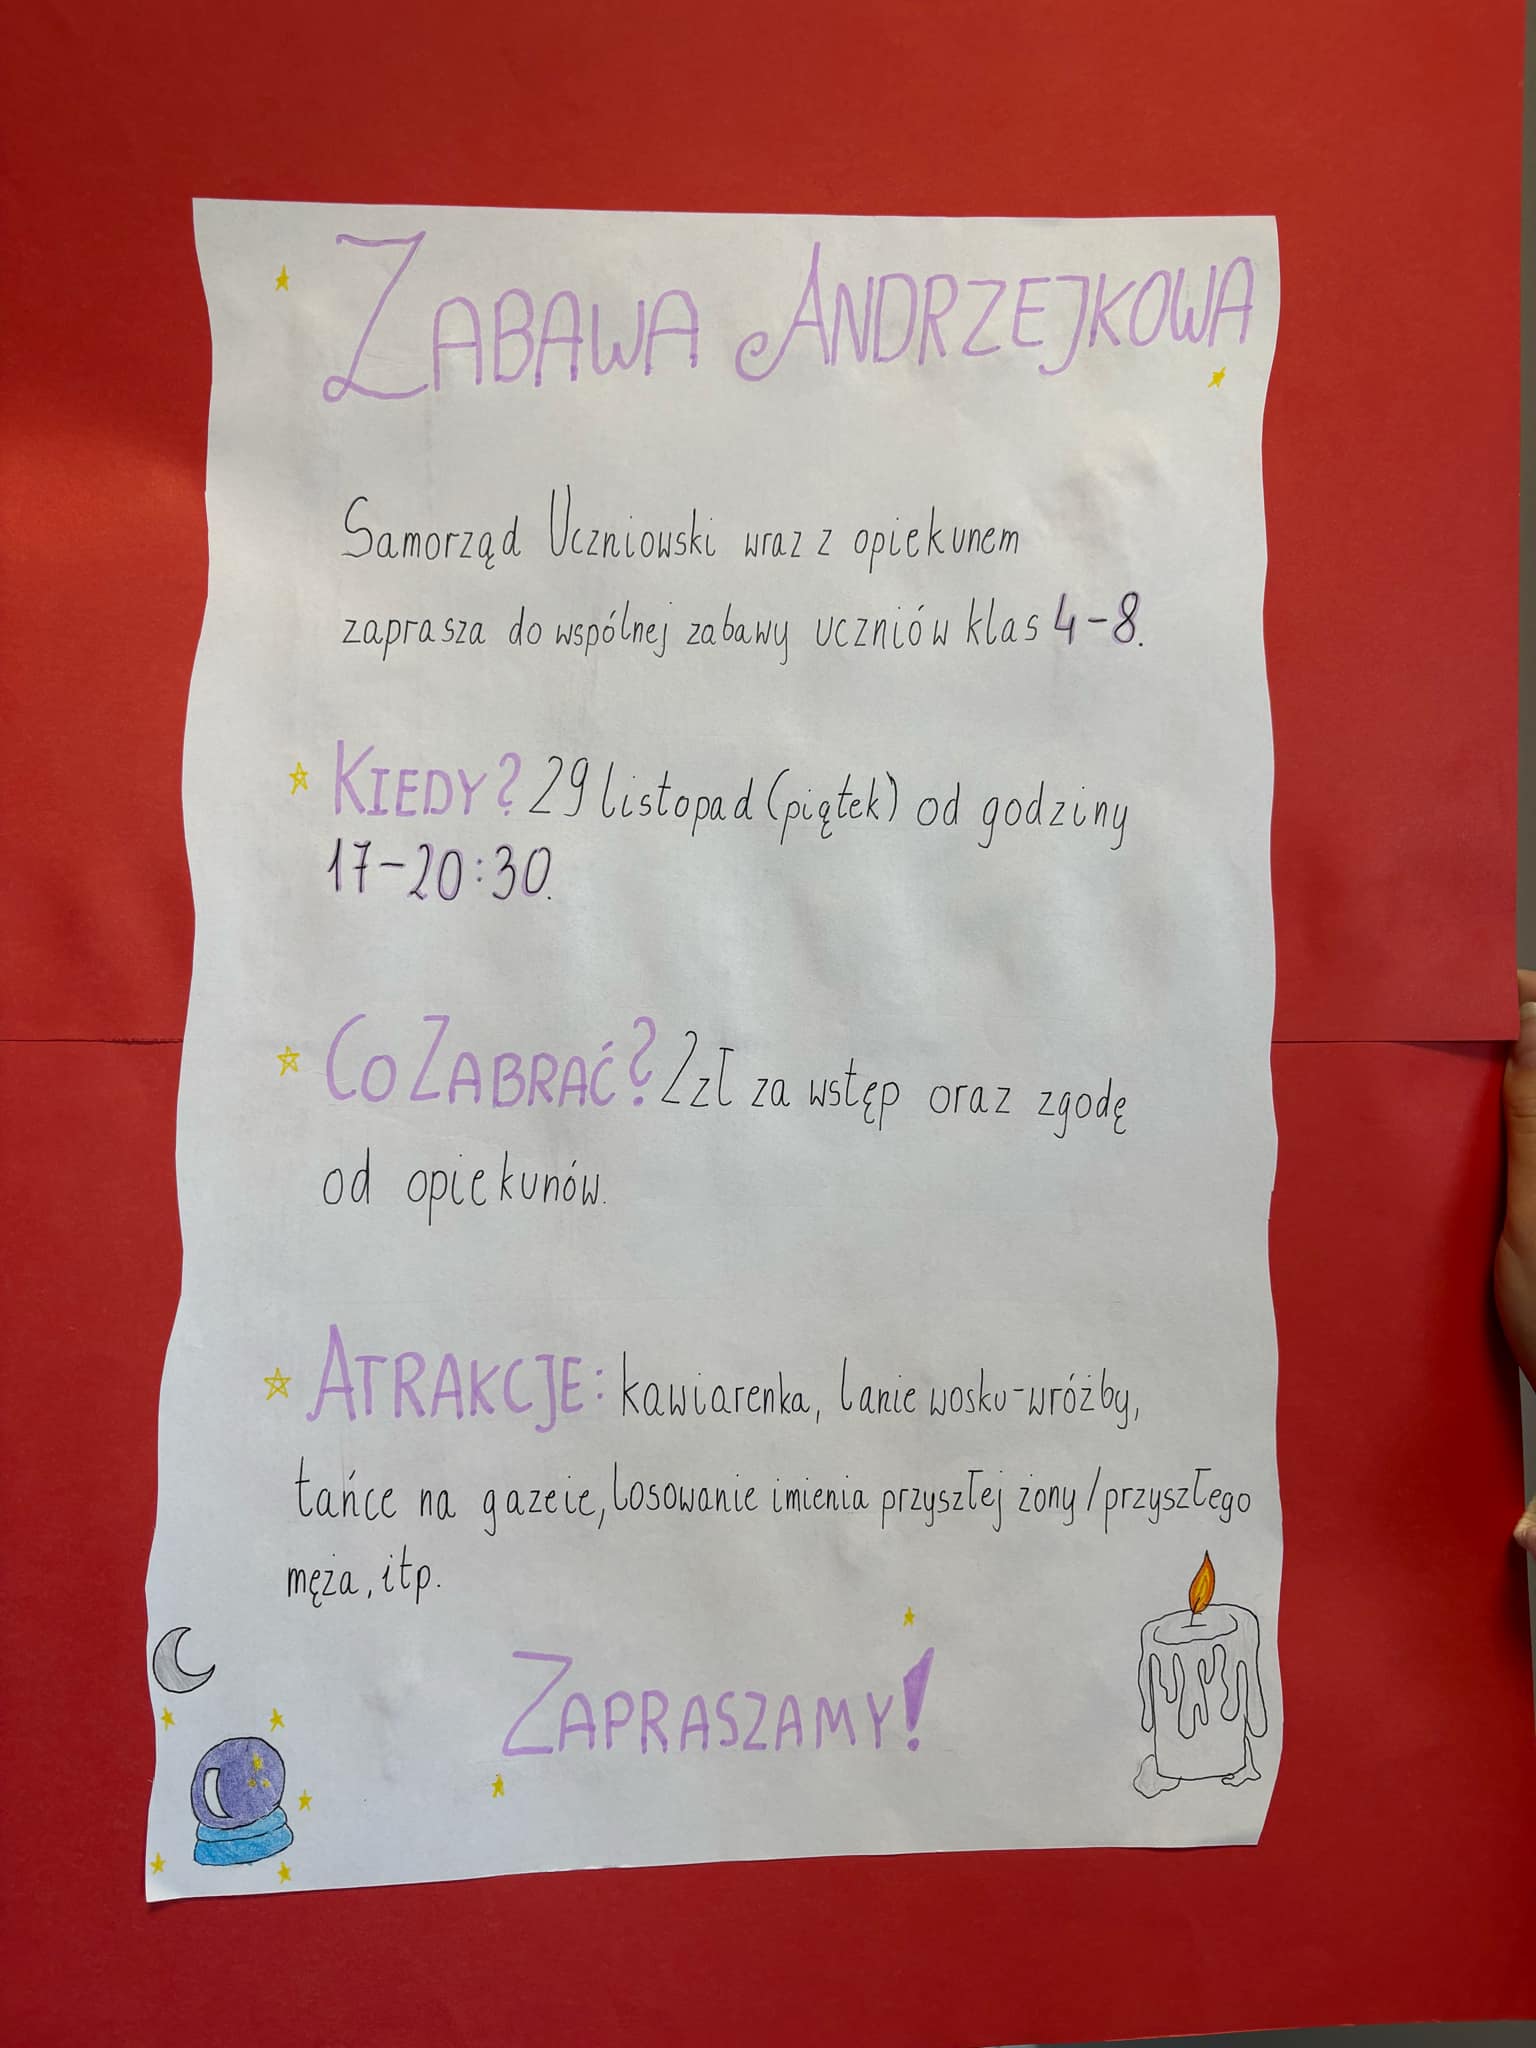 ZABAWA ANDRZEJKOWA
Samorząd Uczniowski wraz z opiekunem
zaprasza do wspólnej zabawy uczniów klas 4-8.
KIEDY? 29 listopad (piątek) od godziny
17-20:30.
CO ZABRAĆ? 2zł za wstęp oraz zgodę
od opiekunów.
ATRAKCJE: kawiarenka, lanie wosku-wróżby,
tańce na gazeie, losowanie imienia przyszłej żony/przyszłego
męża, itp.
ZAPRASZAMY!